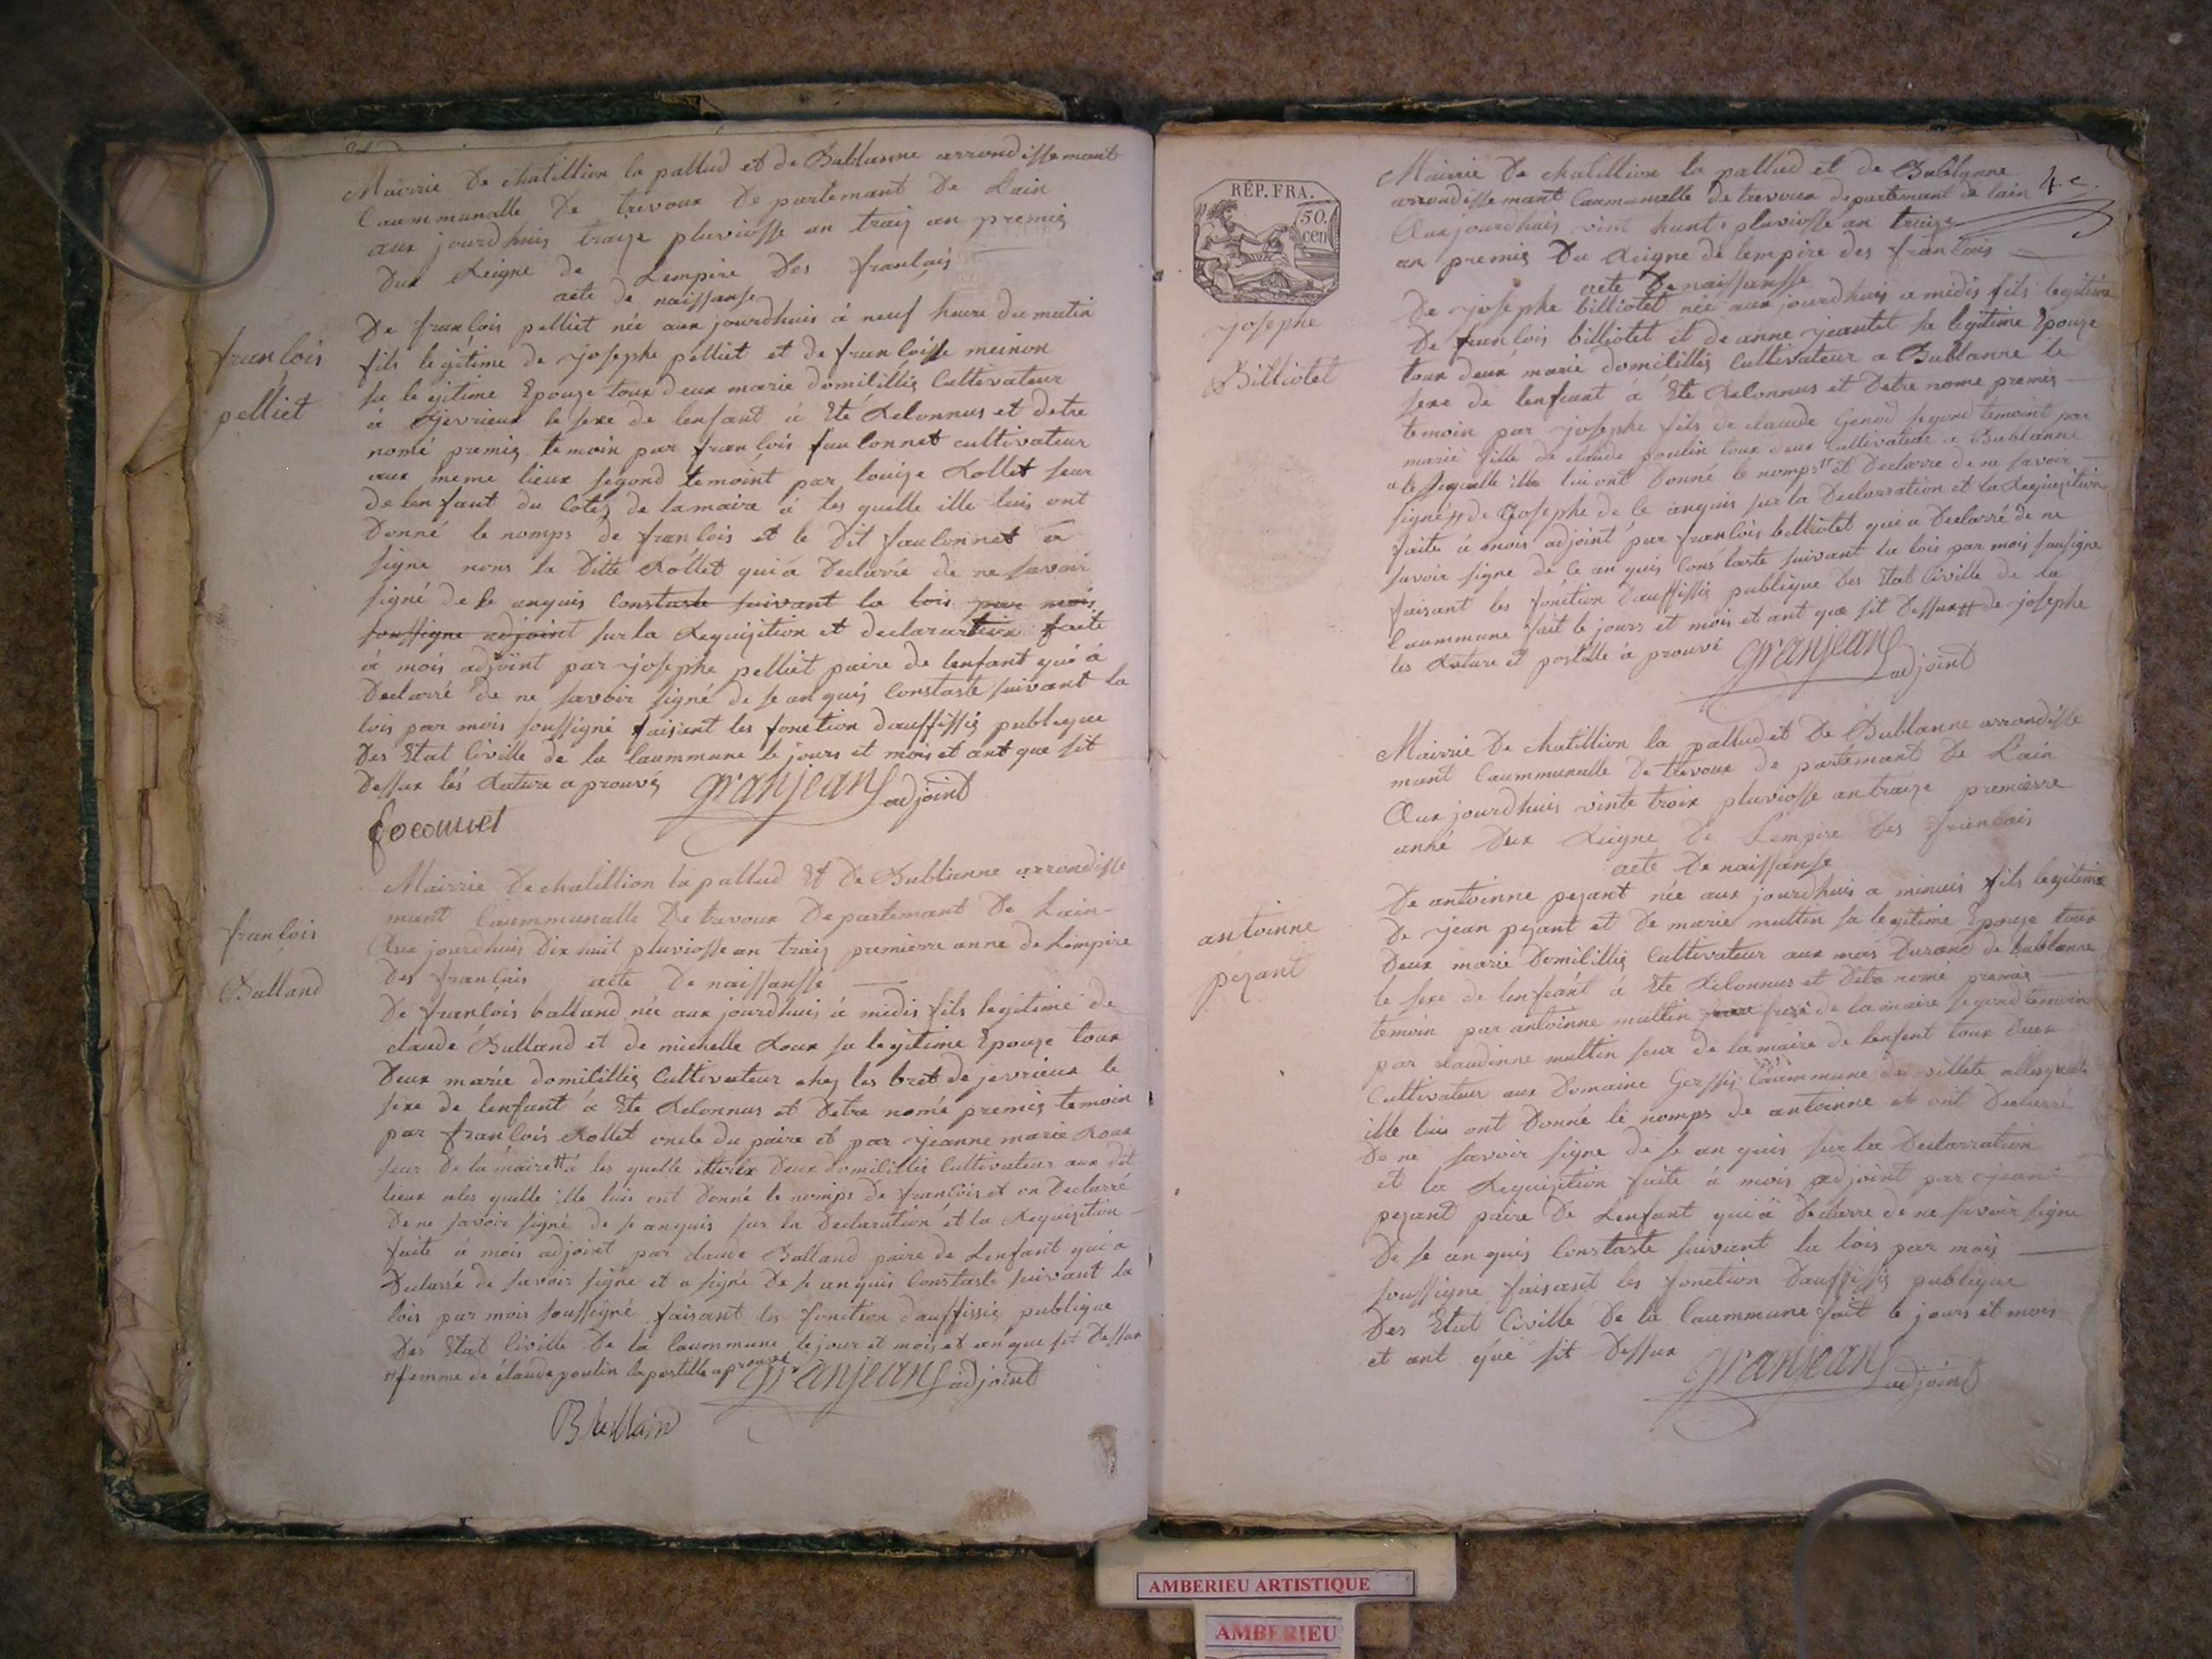 Mairrie De chatillion la pallud et de Bublanne arrondissemant
Caummunalle De trevoux Departemant De Lain
aux jourdhuis traize pluviosse an traiz an premiez
Dux Reigne de Lempire Des francois
acte de naissanse
francois
pelliet
De francois pelliet née aux jourdhuis à neuf heure du matin
fils legitime de josephe pelliet et de francoisse meinon
sa legitime Epouze toux deux marie domicilliez Cultivateur
à Gevrieux le sexe de lenfant à Eté Reconnus et detre
nomé premiez temoin par francois fauconnet cultivateur
aux meme lieux segond temoint par louize Rollet seur
de lenfant du Cotez de lamaire à les quelle ille luis ont
Donné le nomps de francois et le Dit fauconnet a
signe nons la Ditte Rollet qui à Declarré de ne savoir
signé de se anquis Constaste suivant la lois par mois
soussigne adjoint sur la Requizition et declarartion faite
à mois adjoint par josephe pelliet paire de lenfant qui à
Declarré de ne savoir signé de se anquis Constaste suivant la
lois par mois soussigné faisant les fonction dauffissiez publique
Des Etat Civille de la Caummune le jours et mois et ant que sit
Dessux les Rature a prouvéz granjean adjoint
focounet
Mairrie De chatillion la pallud Et De Bublanne arrondisse
mant Caummunalle De trevoux Departemant De Lain
Aux jourdhuis Dix huit pluviosse an traiz premierre anne de Lempire
Des francois acte De naissansse
francois
Balland
De francois balland née aux jourdhuis à midis fils legitime de
claude Balland et de michelle Roux sa legitime Epouze toux
Deux marie domicilliez Cultivateur chez les bret de jevrieux le
sexe de lenfant à Ete Reconnus et Detre nomé premiez temoin
par francois Rollet oncle du paire et par jeanne marie Roux
seur De la maire # à les quelle Deux domicilliez Cultivateur aux dit
lieux ales quelle ille luis ont Donné le nomps De francois et on Declarré
De ne savoir signé de se anquis sur la Declaration et la Requizition
faite à mois adjoint par claude Balland paire de Lenfant qui a
Declarré de savoir signe et a signé De se anquis Constaste suivant la
lois par mois soussigné faisant les fonction dauffissiez publique
Des Etat Civille De la Caummune le jour et mois et an que sit Dessux
# femme de claude poulin la postille aprouvé granjean adjoint
Balland
RÉP. FRA.
50.
cen
4 e.
Mairrie De chatillion la pallud et de Bublanne
arrondissemant Caumunalle de trevoux departemant de lain
Aux jourdhuis vint huut pluviosse an traize
an premiez Du Reigne de lempire des francois
acte De naissansse
josephe
Billiotet
De josephe billiotet née aux jourdhuis a midis fils legitime
De francois billiotet et de anne jeantet sa legitime Epouze
toux deux marie domicilliez Cultivateur a Bublanne le
sexe de lenfant à Ete Reconnus et Detre nome premiez
temoin par josephe fils de claude Genod segond temoint par
marie fille de claude poulin toux deux Cultivateur a Bublanne
a lesquelle ille lui ont Donné le nomps # et Declarre de ne savoir
signé # de josephe de ce anquis sur la Declarration et la Requizition
faite à mois adjoint par francois billiotet qui a Declarré de ne
savoir signe de ce anquis Constaste suivant la lois par mois sousigne
faisant les fonction dauffissiez publique Des Etat Civille de la
Caummune fait le jours et mois et ant que sit Dessux # de josephe
les Rature et postille à prouvé granjean adjoint
Mairrie De chatillion la pallud et De Bublanne arrondisse
mant Caummunalle De trevoux Departemant De Lain
Aux jourdhuis vinte troix pluviosse an traize premierre
anné Dux Reigne De Lempire Des francois
acte De naissanse
antoinne
pezant
De antoinne pezant née aux jourdhuis a minuis fils legitime
De jean pezant et De marie multin sa legitime Epouze toux
Deux marie Domicilliez Cultivateur aux mas Durand de bublanne
le sexe de lenfeant à Ete Reconnus et Detre nomé premiez
temoin par antoinne multin frere de lamaire segond temoin
par claudinne multin seur de lamaire de lenfent toux Deux
Cultivateur aux Domaine Caummune de villete allesquelle
ille luis ont Donné le nomps de antoinne et ont Declarré
De ne savoir signe de se anquis sur la Declarration
et la Requizition faite à mois adjoint par jean
pezant paire De Lenfant qui à Declarre de ne savoir signe
De se anquis Constaste suivant la lois par mois
soussigne faisant les fonction Dauffissiez publique
Des Etat Civille De la Caummune fait le jours et mois
et ant que sit Dessux granjean adjoint
AMBERIEU ARTISTIQUE
AMBERIEU